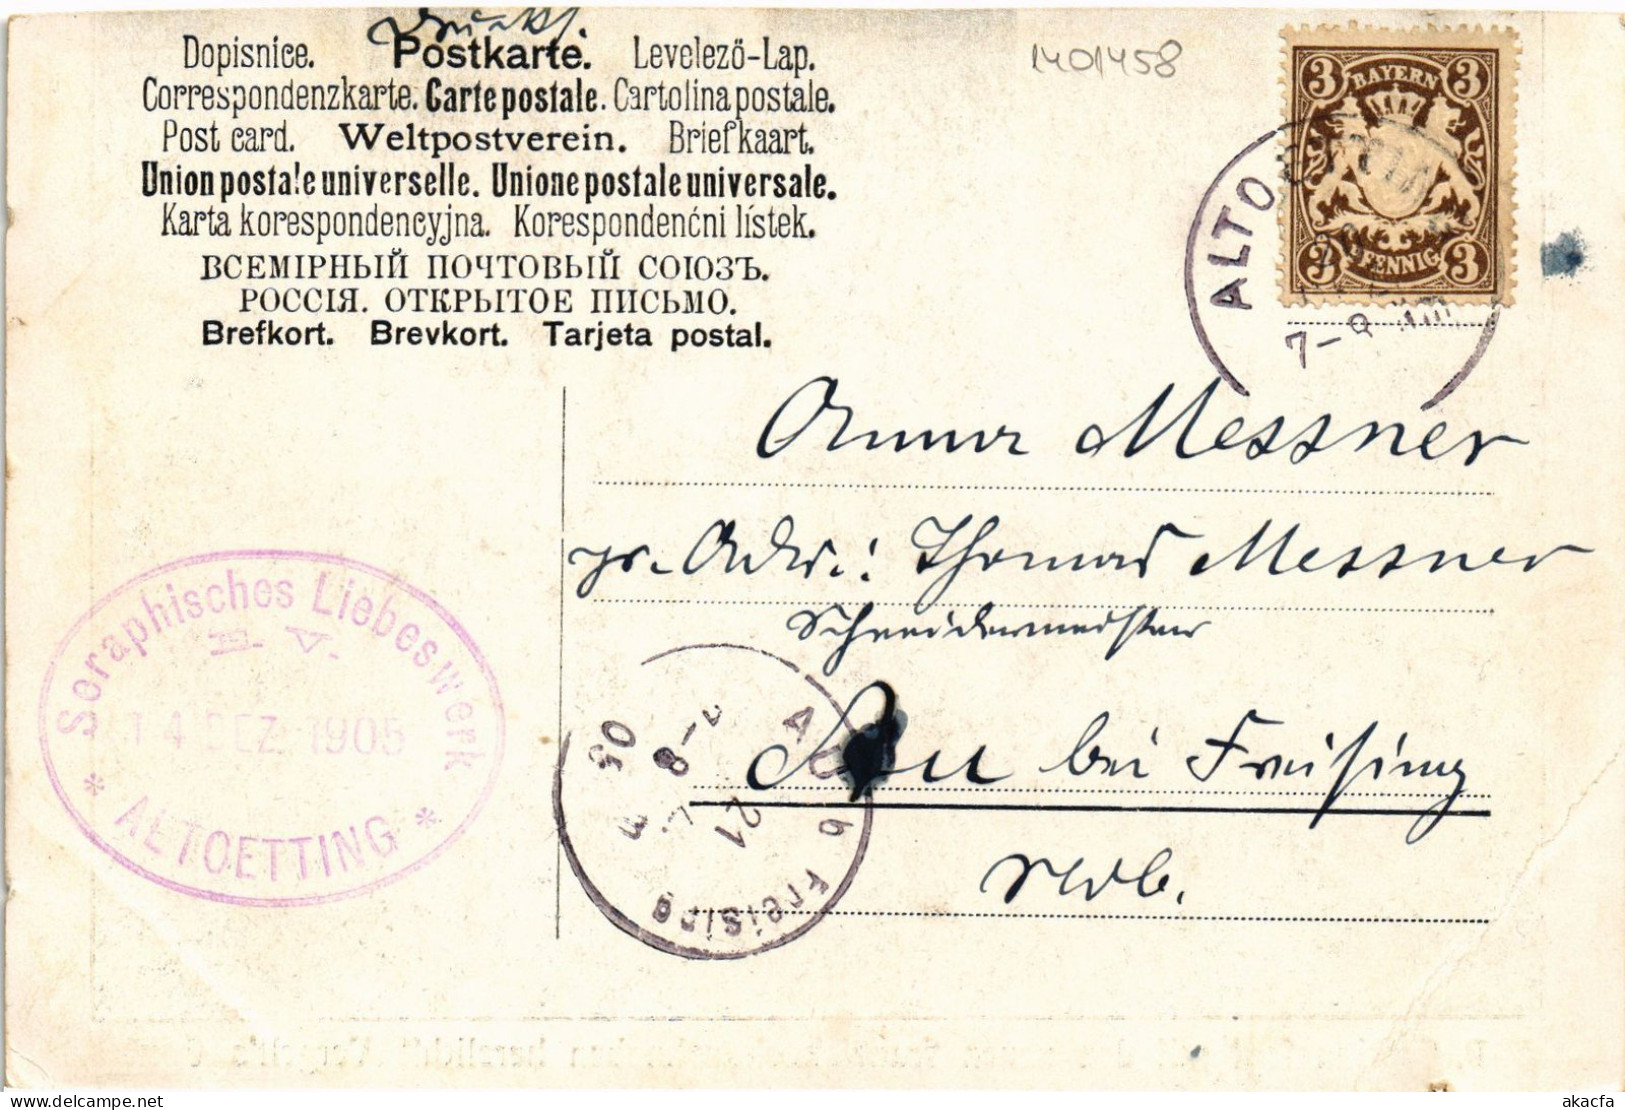 Dopisnice. Postkarte. Levelező-Lap.
Correspondenzkarte. Carte postale. Cartolina postale.
Post card. Weltpostverein. Briefkaart.
Union postale universelle. Unione postale universale.
Karta korespondencyjna. Korespondenćni lístek.
ВСЕМІРНЫЙ ПОЧТОВЫЙ СОЮЗЪ.
РОССІЯ. ОТКРЫТОЕ ПИСЬМО.
Brefkort. Brevkort. Tarjeta postal.
1401458
3 BAYERN 3
3 PFENNIG 3
ALTO
7-8
Anna Messner
pr. Adr.: Thomas Messner
Schneidermeister
Au bei Freising
Seraphisches Liebeswerk
E. V.
14 DEZ. 1905
* ALTOETTING *
AU b Freising
21
05
akacfa